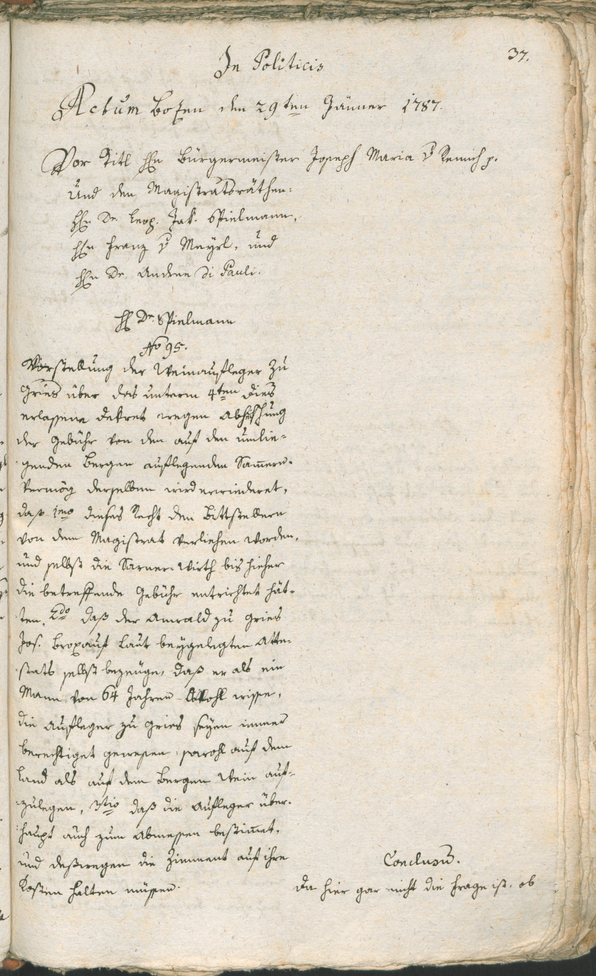 37.
In Politicis
Actum Bozen den 29ten Jänner 1787.
Vor Titl Hn Bürgermeister Joseph Maria v
Und den Magistratsräthen:
Hn Dr Leop. Jak. Spielmann,
Hn Franz v Mayrl, und
Hn Dr. Andree Di Pauli.
H Dr. Spielmann
No 95.
Vorstellung der Weinaufleger zu
Gries über das unterm 4ten dies
erlassene Dekret wegen
der Gebühr von den auf den umlie-
genden Bergen auflegenden
Vermög derselben wird erwiederet,
daß 1mo dieses Recht den Bittstellern
von dem Magistrat verliehen worden,
und selbst die Sarner Wirth bis hieher
die betreffende Gebühr entrichtet hät-
ten, 2do daß der Anwald zu Gries
Jos. laut beygelegten Atte-
stats selbst bezeuge, daß er als ein
Mann von 64 Jahren wohl wisse,
die Aufleger zu Gries seyen immer
berechtiget gewesen sowohl auf dem
Land als auf dem Bergen Wein auf-
zulegen, 3tio daß die Aufleger über-
haupt auch zum Abmessen bestimmt,
und deßwegen die Zimment auf ihre
Kosten halten müssen.
Conclusum.
Da hier gar nicht die Frage ist, ob